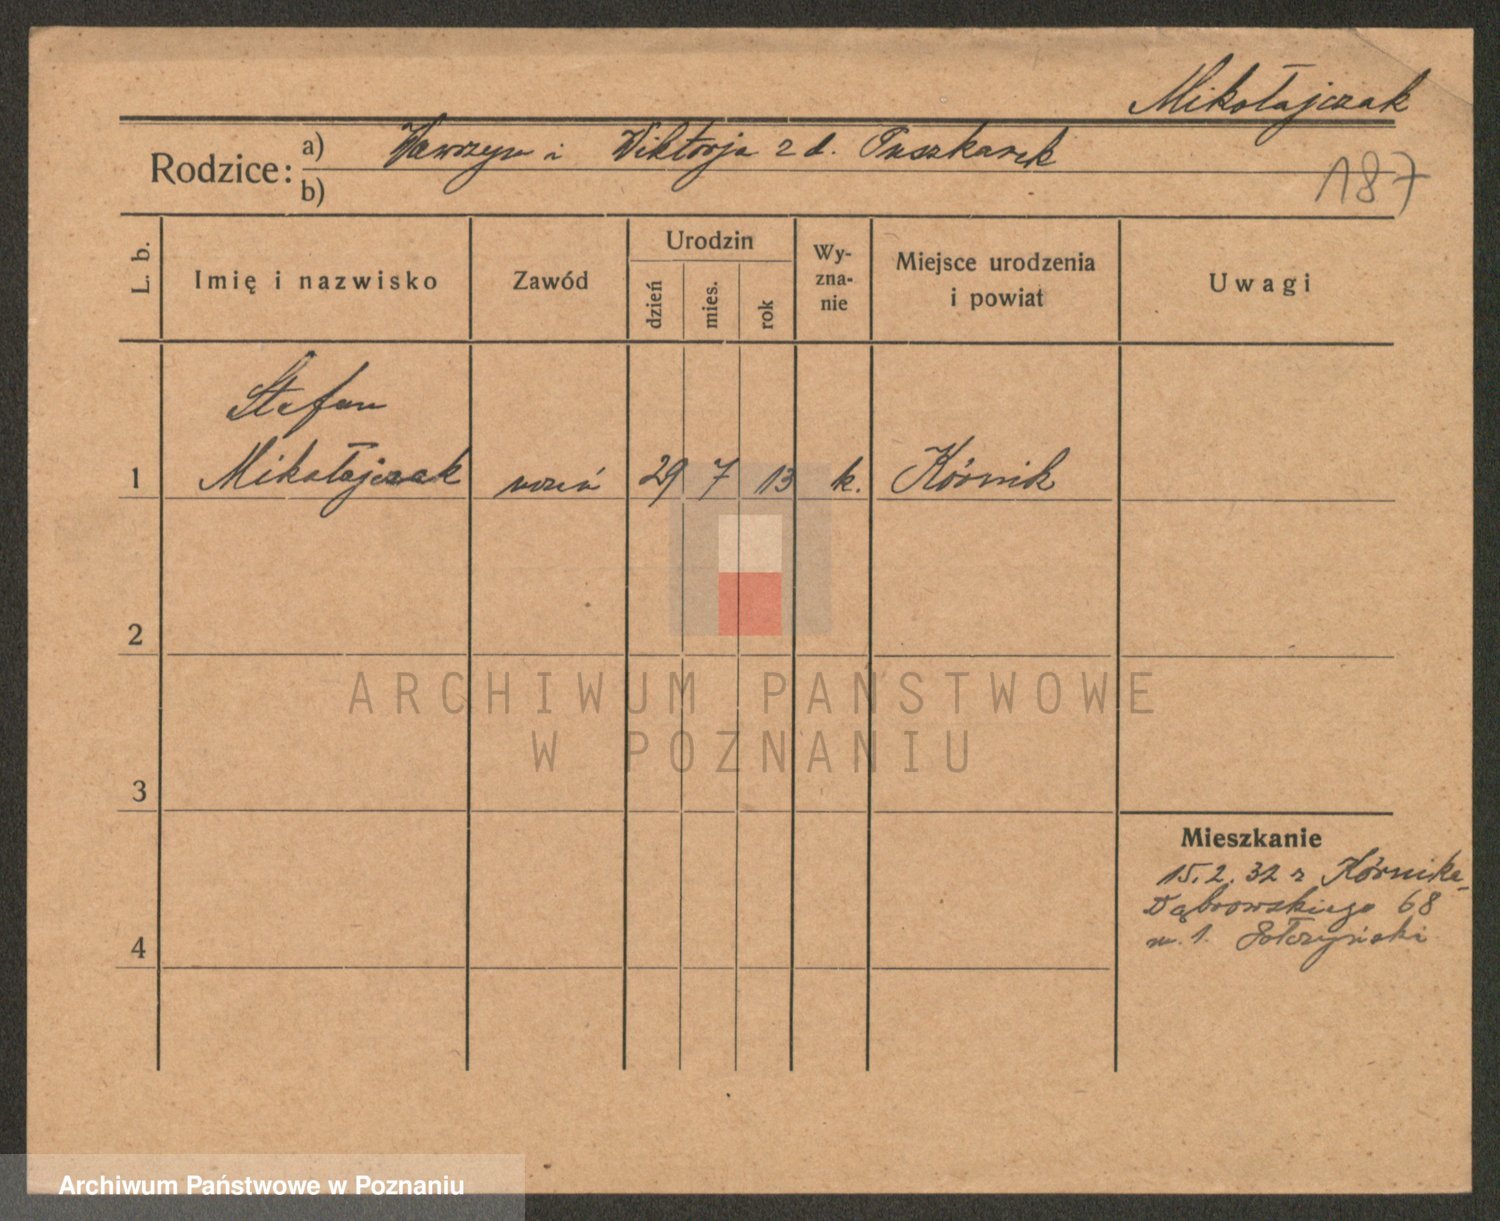 Mikołajczak
Rodzice: a) Wawrzyn i Wiktorja z d. Puszkarek
187
b)
L. b.
Imię i nazwisko
Zawód
Urodzin
dzień
mies.
rok
Wy-
zna-
nie
Miejsce urodzenia
i powiat
Uwagi
Stefan
1 Mikołajczak uczeń 29 7 13 k. Kórnik
2
ARCHIWUM PAŃSTWOWE
W POZNANIU
3
Mieszkanie
15.2.32 z Kórnika
Dąbrowskiego 68
m. 1.
4
Archiwum Państwowe w Poznaniu